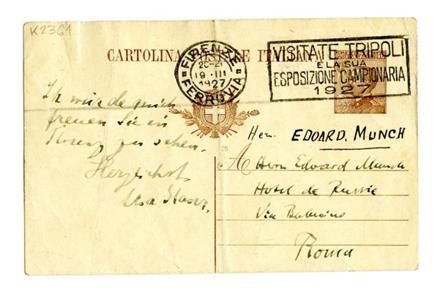 K2361
CARTOLINA ITALIANA
FIRENZE
20-21
19·III
1927
FERROVIA
VISITATE TRIPOLI
E LA SUA
ESPOSIZIONE CAMPIONARIA
1927
Ich würde mich
freuen Sie in
Florenz zu sehen.
Herzlichst
Herr. EDOARD. MUNCH
A Herrn Edward Munch
Hotel de Russie
Via Babuino
Roma